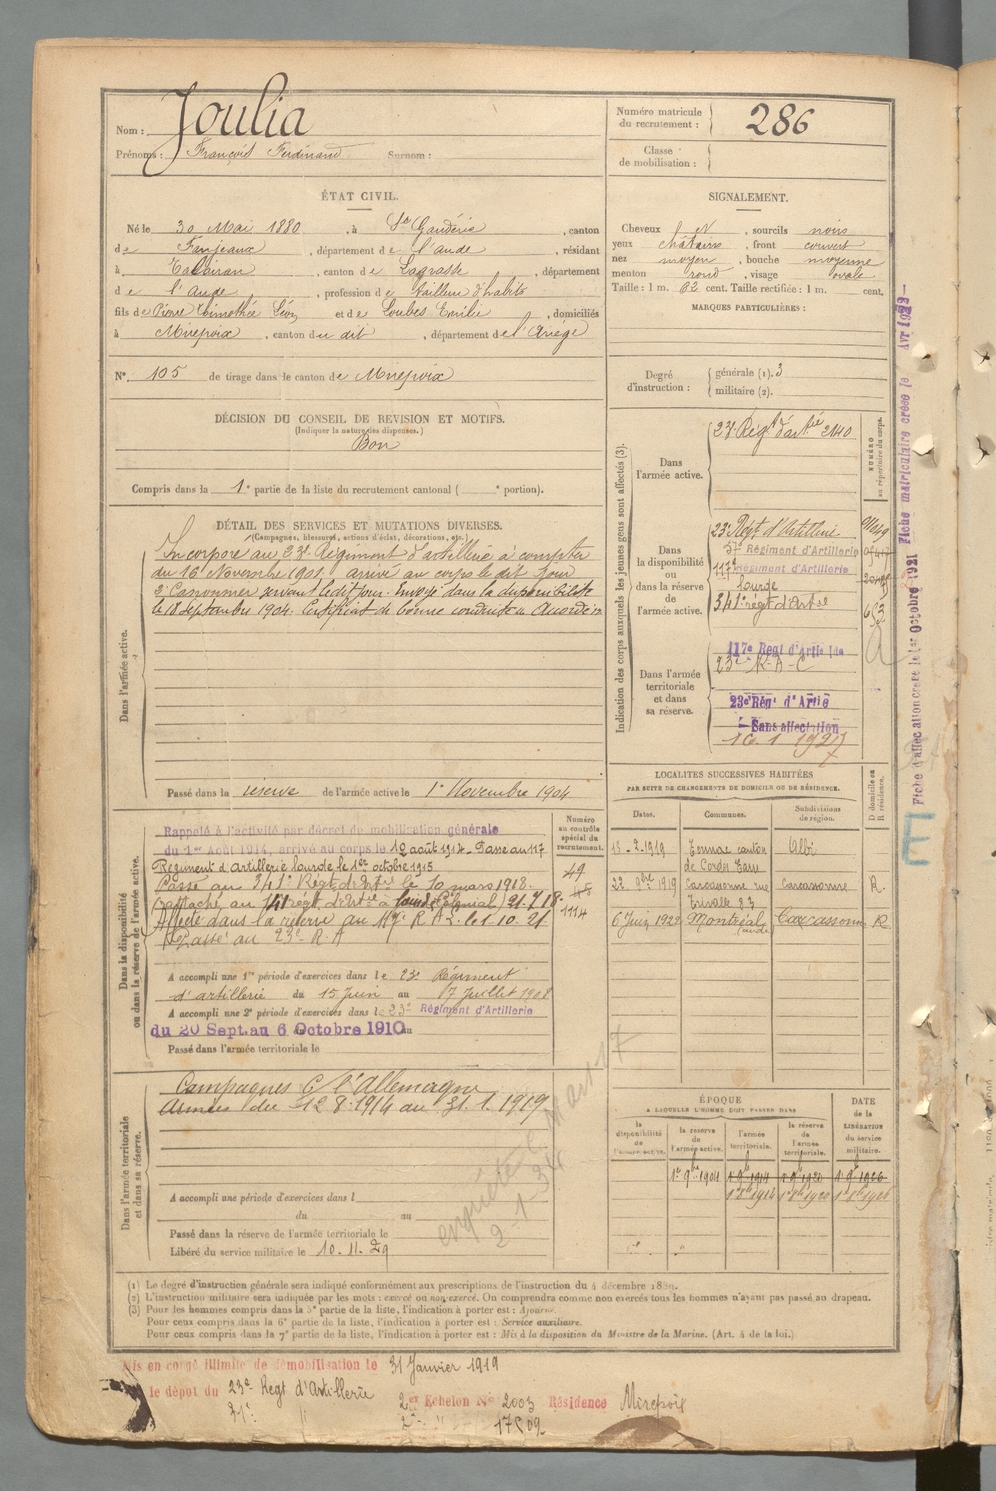 Nom : Joulia
Prénoms : François Ferdinand Surnom :
Numéro matricule du recrutement : 286
Classe de mobilisation :
ÉTAT CIVIL.
Né le 30 Mai 1880, à Ste Gaudérie, canton
de Fanjeaux, département de l'aude, résidant
à Talairan, canton de Lagrasse, département
de l'aude, profession de tailleur d'habits
fils de Pierre Timothée Léon et de Loubes Emilie, domiciliés
à Mirepoix, canton du dit, département de l'Ariège
N° 105 de tirage dans le canton de Mirepoix
DÉCISION DU CONSEIL DE REVISION ET MOTIFS.
(Indiquer la nature des dispenses.)
Bon
Compris dans la 1e partie de la liste du recrutement cantonal ( e portion).
SIGNALEMENT.
Cheveux N, sourcils noirs
yeux châtains, front couvert
nez moyen, bouche moyenne
menton rond, visage ovale
Taille : 1 m. 62 cent. Taille rectifiée : 1 m. cent.
MARQUES PARTICULIÈRES :
Degré d'instruction : générale (1). 3
militaire (2).
DÉTAIL DES SERVICES ET MUTATIONS DIVERSES.
(Campagnes, blessures, actions d'éclat, décorations, etc.)
Dans l'armée active.
Incorporé au 23e Régiment d'artillerie à compter
du 16 Novembre 1901. arrivé au corps le dit jour
2e Canonnier servant le dit jour. Envoyé dans la disponibilité
le 18 septembre 1904. Certificat de bonne conduite Accordé
Passé dans la réserve de l'armée active le 1er Novembre 1904
Indication des corps auxquels les jeunes gens sont affectés (3).
NUMÉRO au répertoire du corps.
Dans l'armée active.
23e Régt d'artie 2140
Dans la disponibilité ou dans la réserve de l'armée active.
23e Régt d'Artillerie
57e Régiment d'Artillerie
117e Régiment d'Artillerie
lourde
341e régt d'Artie
Dans l'armée territoriale et dans sa réserve.
117e Régt d'Artie lde
23e R-A-C
23e Rég' d'Artie
Sans affectation
16.1.1927
Fiche d'affectation créée le 1er Octobre 1921
Fiche matriculaire créée le Avr
LOCALITES SUCCESSIVES HABITÉES
PAR SUITE DE CHANGEMENTS DE DOMICILE OU DE RÉSIDENCE.
Dates. Communes. Subdivisions de région. D domicile ou R résidence.
13-2-1919 canton de Cordes Tarn Albi
22 9bre 1919 Carcassonne rue Trivalle 83 Carcassonne R.
6 Juin 1922 Montréal (aude) Carcassonne R
Dans la disponibilité ou dans la réserve de l'armée active.
Numéro au contrôle spécial du recrutement.
49
1114
Rappelé à l'activité par décret de mobilisation générale
du 1er Août 1914, arrivé au corps le 12 août 1914. Passe au 117
Régiment d'artillerie lourde le 1er octobre 1915
Passé au 341e Régt d'Artie le 10 mars 1918.
Rattaché au 141 régt d'Artie à lourde Colonial) 21.7.18.
Affecté dans la réserve au 117e R A L. le 1.10.21
Passé au 23e R A
A accompli une 1re période d'exercices dans le 23e Régiment
d'artillerie du 15 juin au 17 juillet 1908
A accompli une 2e période d'exercices dans le 23e Régiment d'Artillerie
du 20 Sept. au 6 Octobre 1910
Passé dans l'armée territoriale le
Dans l'armée territoriale et dans sa réserve.
Campagnes C/ l'Allemagne
Armées du 12.8.1914 au 31.1.1919
A accompli une période d'exercices dans l
du au
Passé dans la réserve de l'armée territoriale le
Libéré du service militaire le 10.11.29
2-1-34
ÉPOQUE
A LAQUELLE L'HOMME DOIT PASSER DANS
la disponibilité de l'armée active. la réserve de l'armée active. l'armée territoriale. la réserve de l'armée territoriale. DATE de la LIBÉRATION du service militaire.
1er 9bre 1904 1er 9b 1914 1er 9b 1920 1er 9b 1926
(1) Le degré d'instruction générale sera indiqué conformément aux prescriptions de l'instruction du 4 décembre 1889.
(2) L'instruction militaire sera indiquée par les mots : exercé ou non exercé. On comprendra comme non exercés tous les hommes n'ayant pas passé au drapeau.
(3) Pour les hommes compris dans la 5e partie de la liste, l'indication à porter est : Ajourné.
Pour ceux compris dans la 6e partie de la liste, l'indication à porter est : Service auxiliaire.
Pour ceux compris dans la 7e partie de la liste, l'indication à porter est : Mis à la disposition du Ministre de la Marine. (Art. 4 de la loi.)
Mis en congé illimité de démobilisation le 31 Janvier 1919
le dépôt du 23e Regt d'Artillerie
2er Echelon N° 2003 Résidence Mirepoix
17509